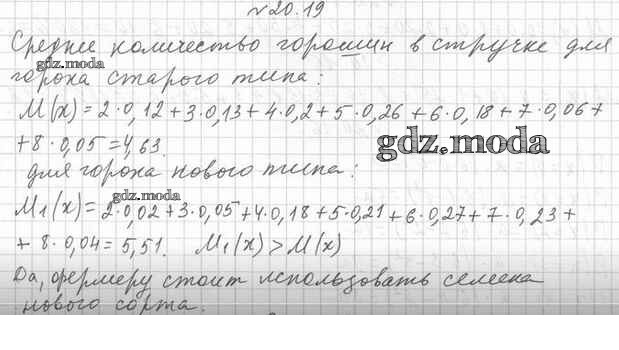 №20.19
Среднее количество горошин в стручке для
gdz.moda
гороха старого типа:
M(x)=2·0,12+3·0,13+4·0,2+5·0,26+6·0,18+7·0,06+
+8·0,05=4,63.
gdz.moda
для гороха нового типа:
gdz.moda
M₁(x)=2·0,02+3·0,05+4·0,18+5·0,21+6·0,27+7·0,23+
+8·0,04=5,51. M₁(x)>M(x)
Да, фермеру стоит использовать семена
нового сорта.